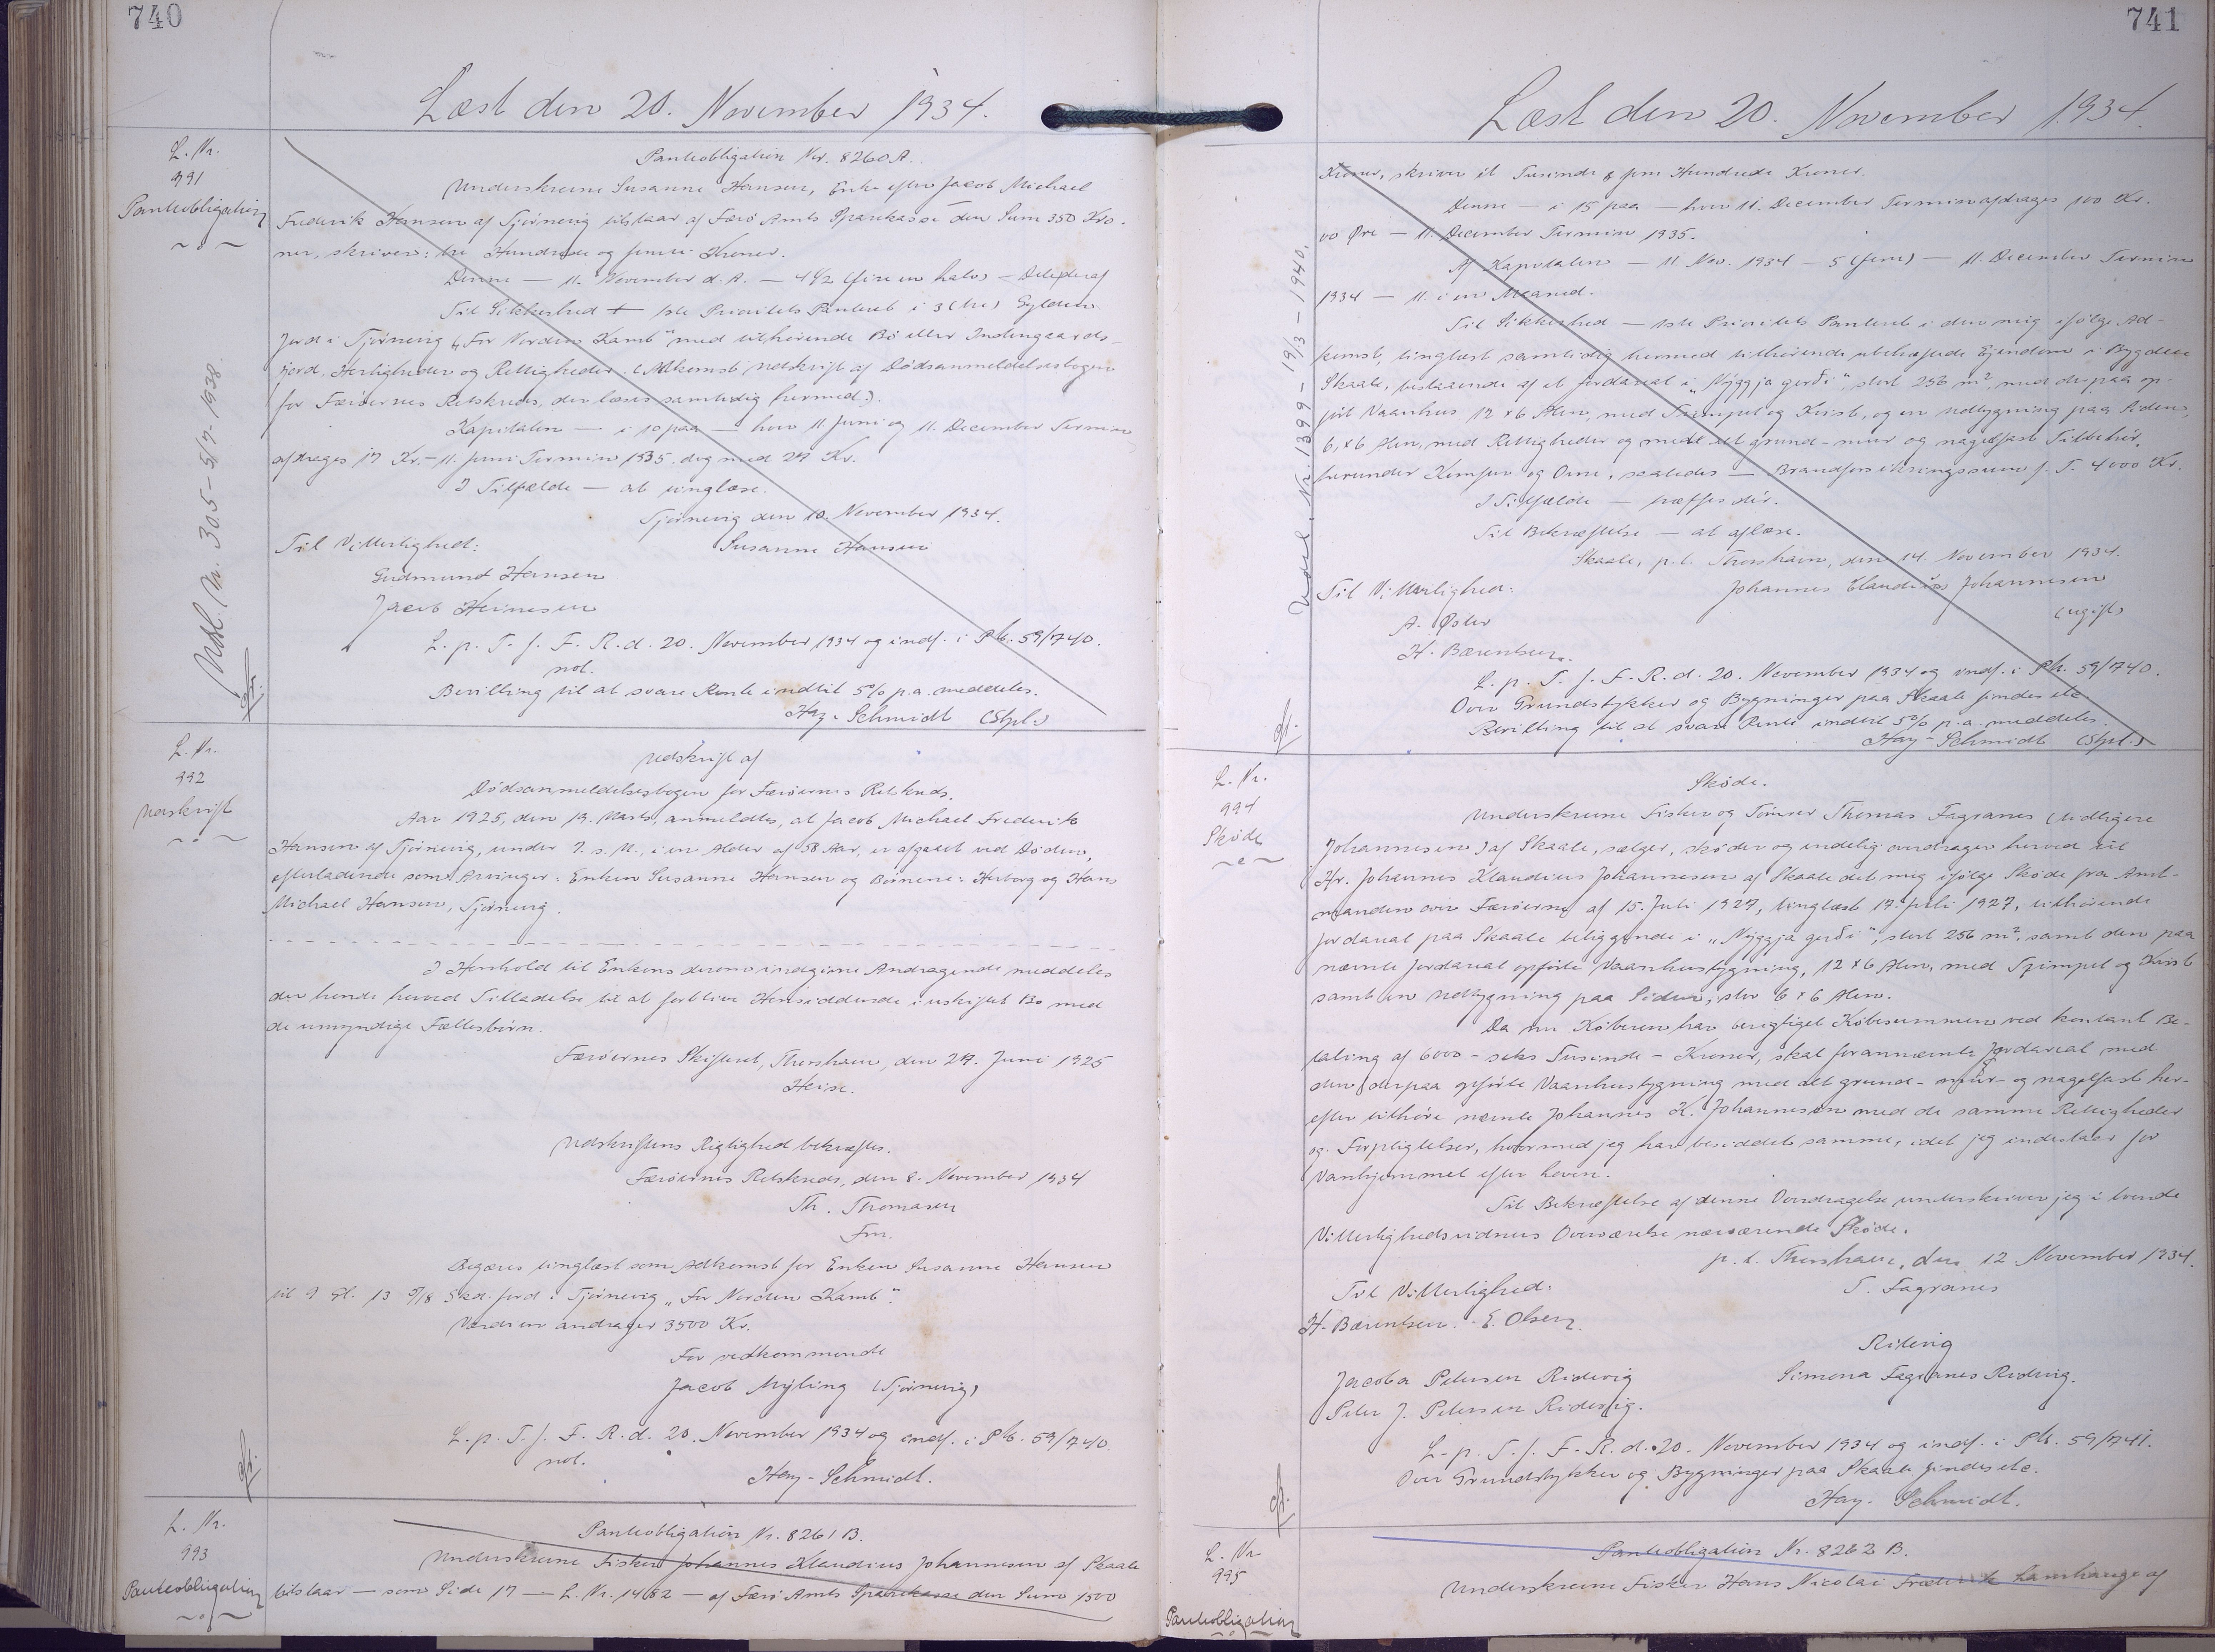 740
Læst den 20. November 1934.
L. Nr.
991
Panteobligation
Udsl. Nr. 305 - 5/7 - 1938.
Panteobligation Nr. 8260 A.
Underskrevne Susanne Hansen, Enke efter Jacob Michael
Frederik Hansen af Tjørnevig tilstaar af Færø Amts Sparekasse den Sum 350 Kro-
ner, skriver: tre Hundrede og femti Kroner.
Denne — 11. November d. A. — 4 1/2 (fire en halv) —
Til Sikkerhed — 1ste Prioritets Panteret i 3 (tre) Gylden
Jord i Tjørnevig „For Norden Kamb“ med tilhørende Bø eller Indengaards-
jord, Herligheder og Rettigheder. (Adkomst Udskrift af Dødsanmeldelsesbogen
for Færøernes Retskreds, der læses samtidig hermed.).
Kapitalen — i 10 paa — hver 11. Juni og 11. December Termin
afdrages 17 Kr. - 11. Juni Termin 1935 dog med 27 Kr.
I Tilfælde — at tinglæse.
Tjørnevig den 10. November 1934.
Til Vitterlighed: Susanne Hansen
Gudmund Hansen
Jacob Heinesen
L. p. T. f. F. R. d. 20. November 1934 og indf. i Pb. 59/740.
not.
Bevilling til at svare Rente indtil 5% p.a. meddeles.
Hay-Schmidt (Stpl.)
L. Nr.
992
Udskrift
Udskrift af
Dødsanmeldelsesbogen for Færøernes Retskreds.
Aar 1925, den 19. Marts, anmeldtes, at Jacob Michael Frederik
Hansen af Tjørnevig, under 7. s. M., i en Alder af 58 Aar, er afgaaet ved Døden,
efterladende som Arvinger: Enken Susanne Hansen og Børnene: Herborg og Hans
Michael Hansen, Tjørnevig.
I Henhold til Enkens derom indgivne Andragende meddeles
der hende herved Tilladelse til at forblive Hensiddende i uskiftet Bo med
de umyndige Fællesbørn.
Færøernes Skifteret, Thorshavn, den 24. Juni 1925
Heise.
Udskriftens Rigtighed bekræftes.
Færøernes Retskreds, den 8. November 1934
Th. Thomasen
Fm.
Begæres tinglæst som Adkomst for Enken Susanne Hansen
til 9 Gl. 13 5/18 Skd. Jord i Tjørnevig „For Norden Kamb“.
Værdien andrager 3500 Kr.
For vedkommende
Jacob Mýling (Tjørnevig)
L. p. T. f. F. R. d. 20. November 1934 og indf. i Pb. 59/740.
not.
Hay-Schmidt.
L. Nr.
993
Panteobligation
Panteobligation Nr. 8261 B.
Underskrevne Fisker Johannes Klaudius Johannesen af Skaale
tilstaar — som Side 17 — L. Nr. 1482 — af Færø Amts Sparekasse den Sum 1500
741
Læst den 20. November 1934.
Udsl. Nr. 1399 - 19/3 - 1940.
Kroner, skriver et Tusinde & fem Hundrede Kroner.
Denne — i 15 paa — hver 11. December Termin afdrages 100 Kr.
00 Øre — 11. December Termin 1935.
Af Kapitalen — 11. Nov. 1934 — 5 (fem) — 11. December Termin
1934 — 11. i en Maaned.
Til Sikkerhed — 1ste Prioritets Panteret i den mig ifølge Ad-
komst, tinglæst samtidig hermed tilhørende ubehæftede Ejendom i Bygden
Skaale, bestaaende af et Jordareal i „Nýggja gerði“, stort 256 m², med derpaa op-
ført Vaanhus 12 x 6 Alen, med Trempel og Kvist, og en Udbygning paa Siden,
6 x 6 Alen, med Rettigheder og med alt grund- mur og nagelfast Tilbehør,
herunder Komfur og Ovne, saaledes — Brandforsikringssum f. T. 4000 Kr.
I Tilfælde —
Til Bekræftelse — at aflæse.
Skaale, p. t. Thorshavn, den 14. November 1934.
Til Vitterlighed: Johannes Claudius Johannesen
A. Øster (ugift)
H. Bærentsen.
L. p. T. f. F. R. d. 20. November 1934 og indf. i Pb. 59/740.
Over Grundstykker og Bygninger paa Skaale findes etc.
Bevilling til at svare Rente indtil 5% p. a. meddeles.
Hay-Schmidt (Stpl.)
L. Nr.
994
Skøde
Skøde.
Underskrevne Fisker og Tømrer Thomas Fagranes (tidligere
Johannesen) af Skaale, sælger, skøder og endelig overdrager herved til
Hr. Johannes Klaudius Johannesen af Skaale det mig ifølge Skøde fra Amt-
manden over Færøerne af 15. Juli 1927, tinglæst 17. Juli 1927, tilhørende
Jordareal paa Skaale beliggende i „Nýggja gerði“, stort 256 m², samt den paa
nævnte Jordareal opførte Vaanhusbygning, 12 x 6 Alen, med Trempel og Kvist
samt en Udbygning paa Siden, stor 6 x 6 Alen.
Da nu Køberen har berigtiget Købesummen ved kontant Be-
taling af 6000 - seks Tusinde - Kroner, skal forannævnte Jordareal med
den derpaa opførte Vaanhusbygning med alt grund- mur- og nagelfast her-
efter tilhøre nævnte Johannes K. Johannesen med de samme Rettigheder
og Forpligtelser, hvormed jeg har besiddet samme, idet jeg indestaar for
Vanhjemmel efter Loven.
Til Bekræftelse af denne Overdragelse underskriver jeg i tvende
Vitterlighedsvidners Overværelse nærværende Skøde.
p. t. Thorshavn, den 12. November 1934.
Til Vitterlighed: T. Fagranes
H. Bærentsen. E. Olsen.
Ridevig
Jacoba Petersen Ridevig Simona Fagranes Ridevig.
Peter J. Petersen Ridevig.
L. p. T. f. F. R. d. 20. November 1934 og indf. i Pb. 59/741.
Over Grundstykker og Bygninger paa Skaale findes etc.
Hay-Schmidt.
L. Nr
995
Panteobligation
Panteobligation Nr. 8262 B.
Underskrevne Fisker Hans Nicolai Frederik Lamhauge af